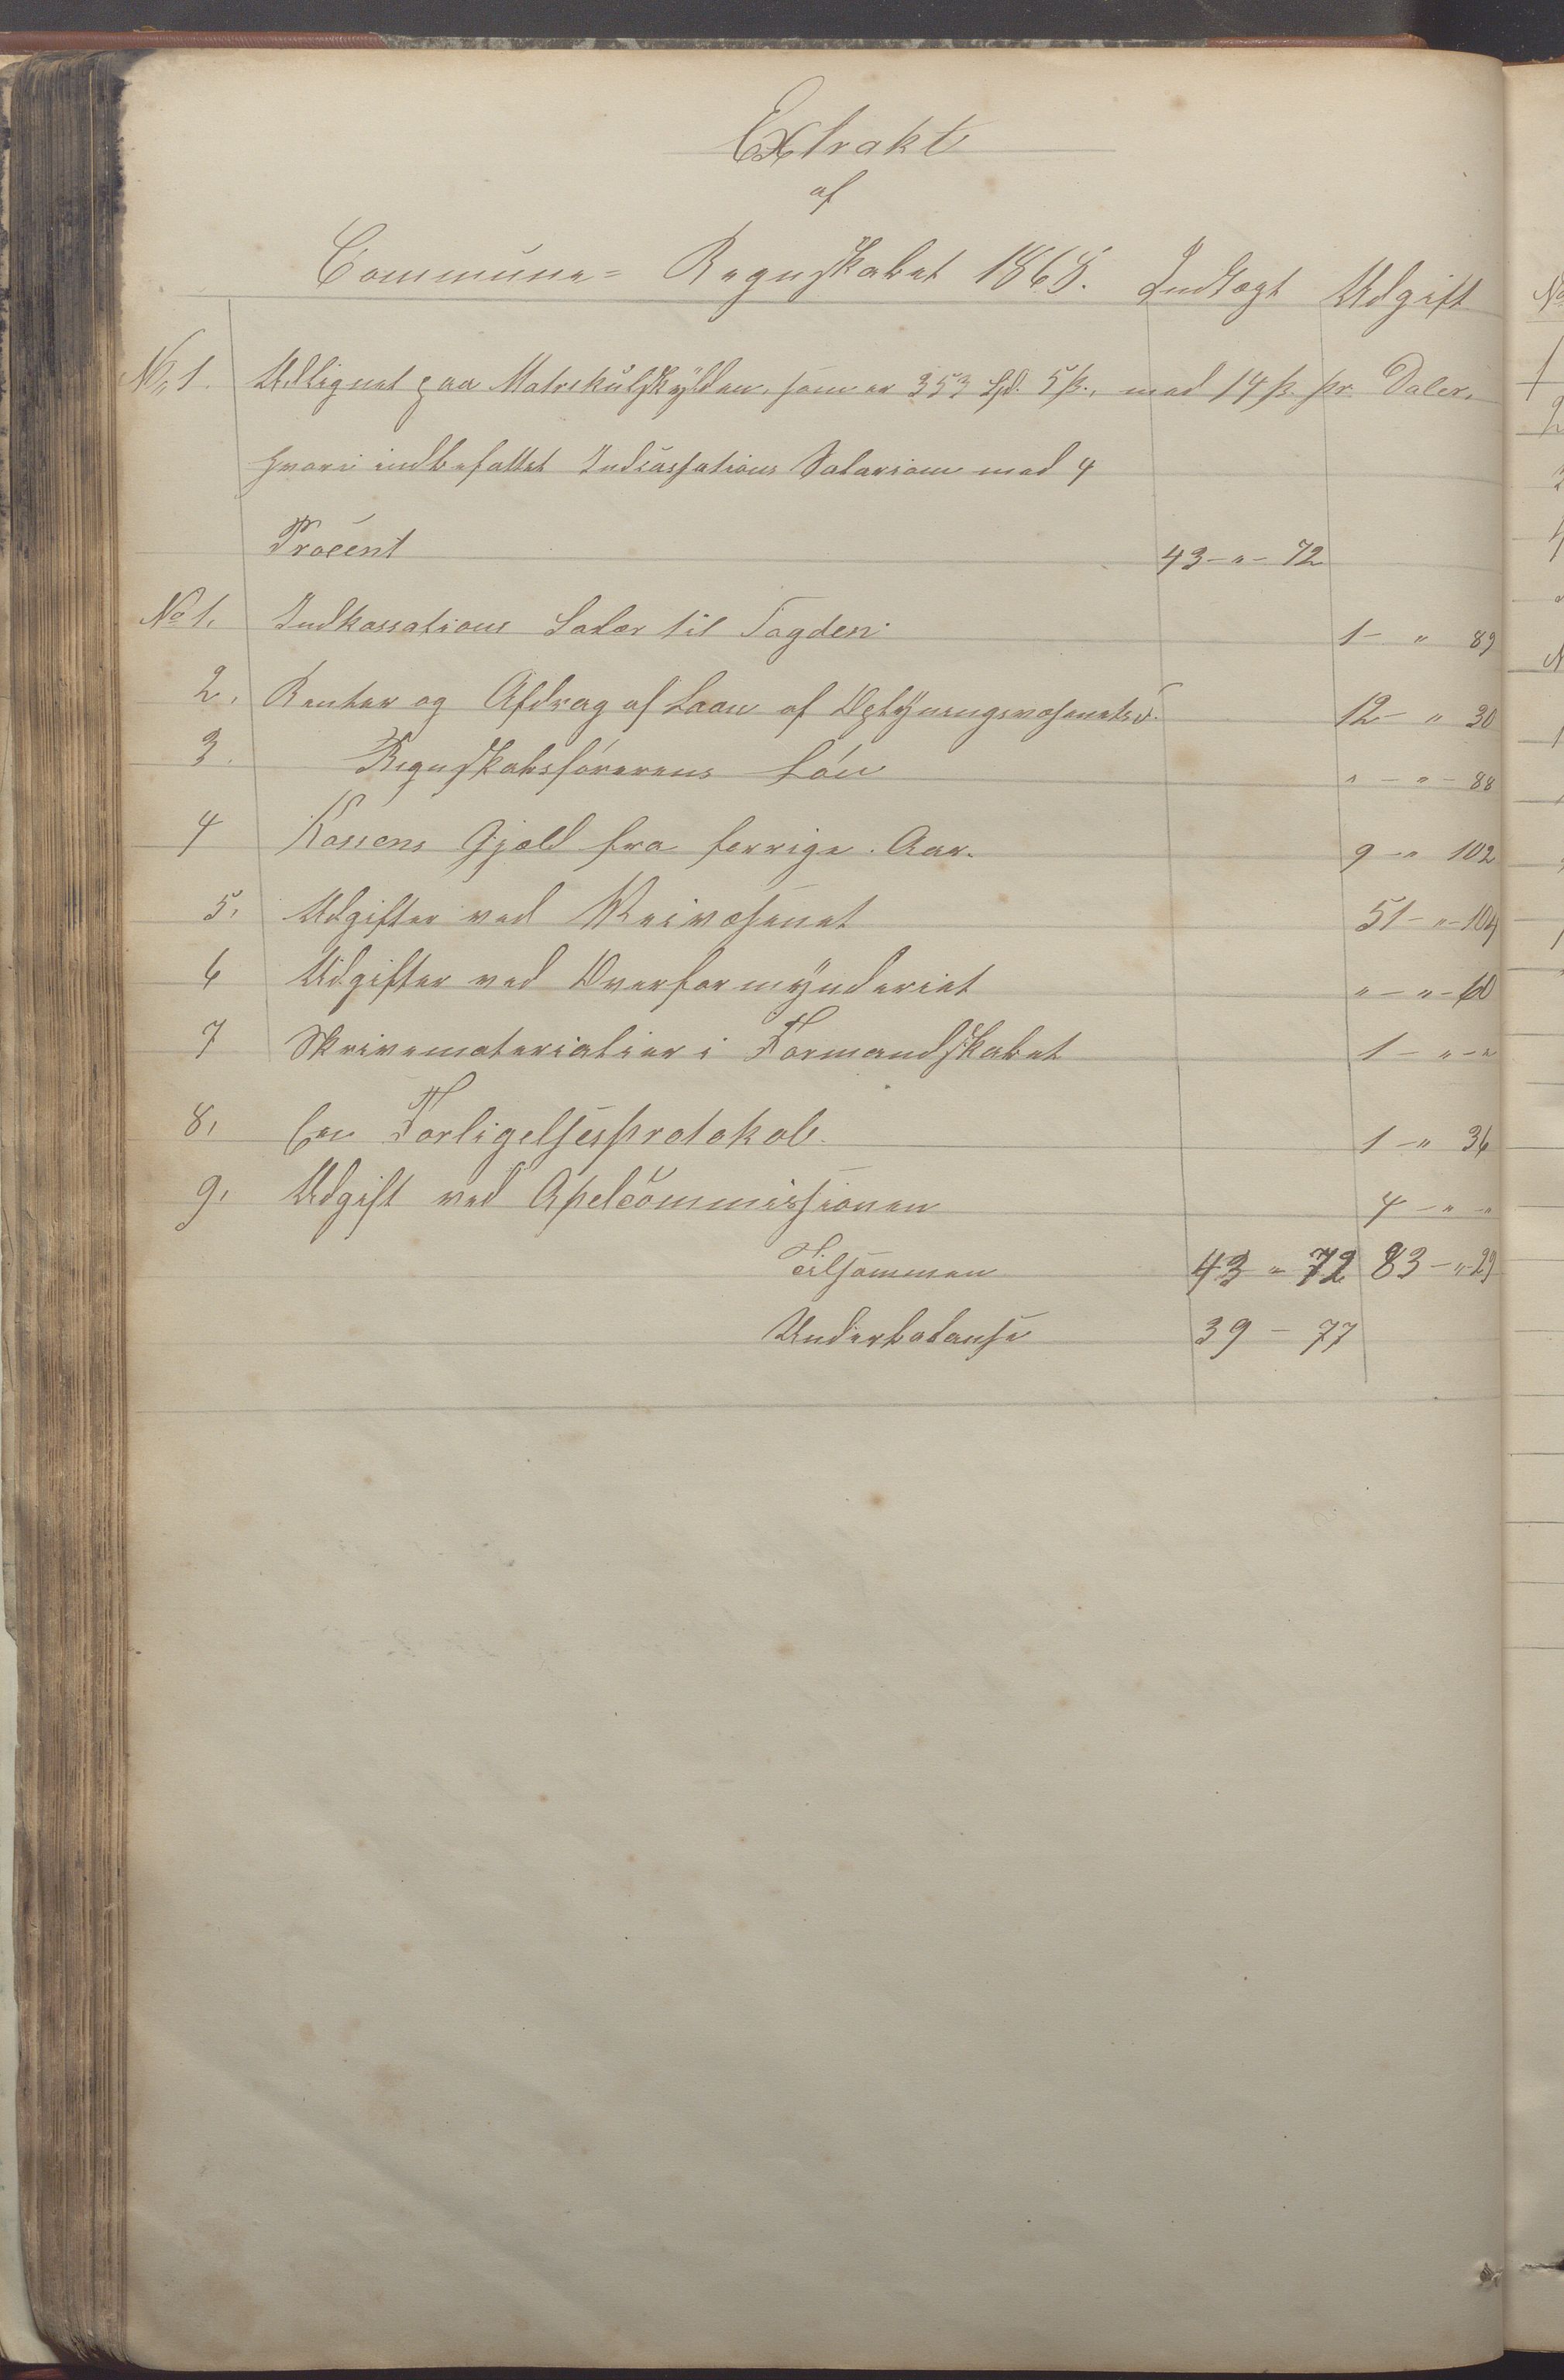 Extrakt
af
Commune= Regnskabet 1868. Indtægt Udgift
No 1. Udlignet paa Matrikülskÿlden, som er 353 Spd. 5 ß., med 14 ß. pr. Daler,
hvori indbefattet Indcassations Salarium med 4
Procent 43 - " - 72
No 1. Indkassations Salær til Fogden 1 - " 89
2. Renter og Afdrag af Laan af Oplÿsningsvæsenets F. 12 - " 30
3. Regnskabsförerens Lön " - " - 88
4 Kassens Gjæld fra forrige Aar. 9 - " 102
5. Udgifter ved Veivæsenet 51 - " - 104
6 Udgifter ved Overformÿnderiet " - " - 60
7 Skrivematerialier i Formandskabet 1 - " - "
8, En Forligelsesprotokol 1 - " 36
9, Udgift ved Apelcommissionen 4 - " - "
Tilsammen 43 " 72 83 - " - 29
Underbalanse 39 - 77